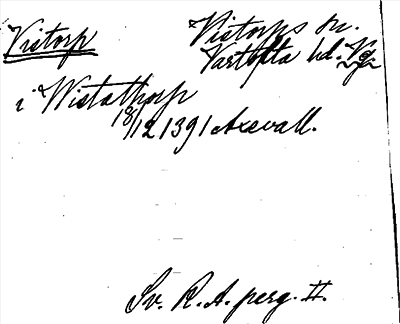 Vistorp
Vistorps sn.
Vartofta hd. Vg.
i Wistathorp
18/12 1391 Axevall.
Sv. R. A. perg. II.